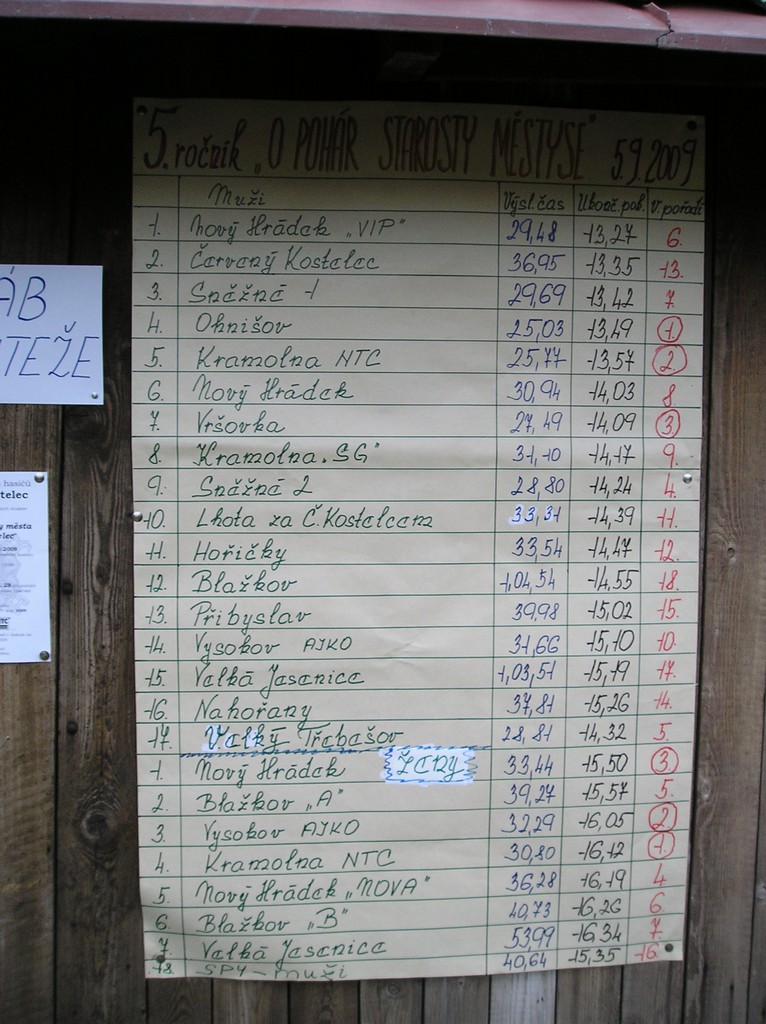 5. ročník „O POHÁR STAROSTY MĚSTYSE" 5.9.2009
Muži Výsl. čas Ukonč. pok. V. pořadí
1. Nový Hrádek „VIP" 29,48 13,27 6.
2. Červený Kostelec 36,95 13,35 13.
3. Sněžné 1 29,69 13,42 7.
4. Ohnišov 25,03 13,49 1.
5. Kramolna NTC 25,77 13,57 2.
6. Nový Hrádek 30,94 14,03 8.
7. Vršovka 27,49 14,09 3.
8. Kramolna „SG" 31,10 14,17 9.
9. Sněžné 2 28,80 14,24 4.
10. Lhota za Č. Kostelcem 33,31 14,39 11.
11. Hořičky 33,54 14,47 12.
12. Blažkov 1,04,54 14,55 18.
13. Přibyslav 39,98 15,02 15.
14. Vysokov AJKO 31,66 15,10 10.
15. Velká Jesenice 1,03,51 15,19 17.
16. Nahořany 37,81 15,26 14.
17. Velký Třebešov 28,81 14,32 5.
Ženy
1. Nový Hrádek 33,44 15,50 3.
2. Blažkov „A" 39,27 15,57 5.
3. Vysokov AJKO 32,29 16,05 2.
4. Kramolna NTC 30,80 16,12 1.
5. Nový Hrádek „NOVA" 36,28 16,19 4
6. Blažkov „B" 40,73 16,26 6
7. Velká Jesenice 53,99 16,34 7.
18. SPY - muži 40,64 15,35 16.
ÁB
TEŽE
hasičů
telec
města
lec"
2009